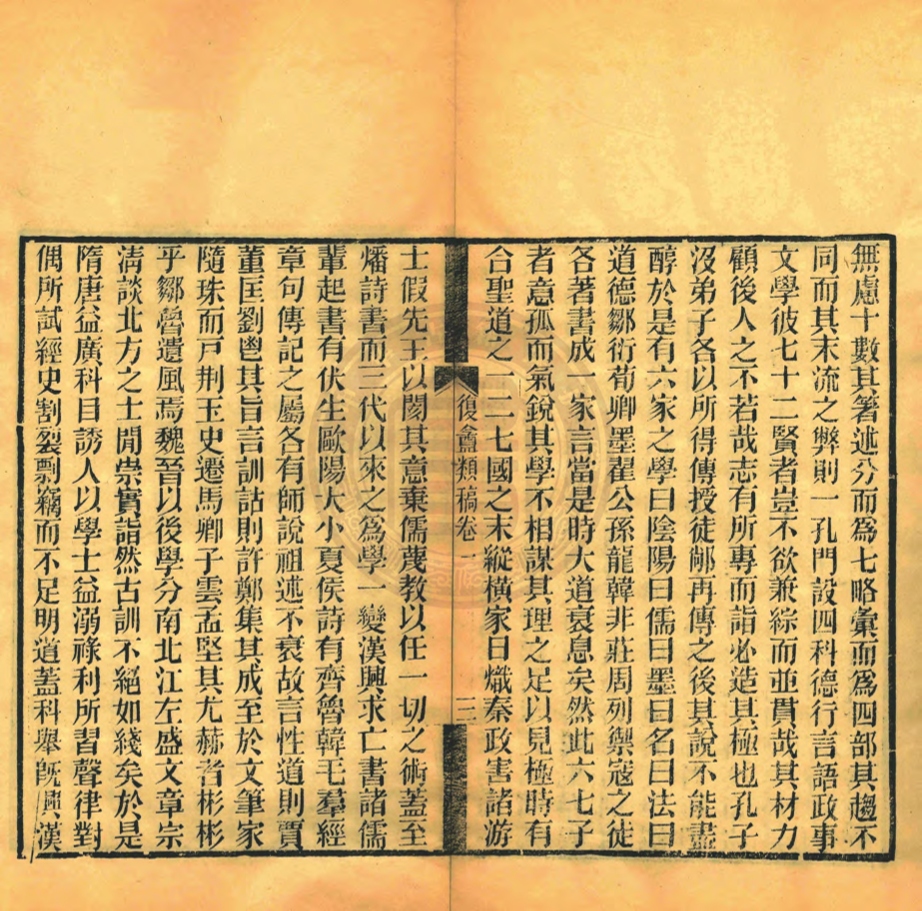 無慮十數其箸述分而爲七略彙而爲四部其趨不
同而其末流之弊則一孔門設四科德行言語政事
文學彼七十二賢者豈不欲兼綜而並貫哉其材力
顧後人之不若哉志有所專而詣必造其極也孔子
沒弟子各以所得傳授徒鄰再傳之後其說不能盡
醇於是有六家之學曰陰陽曰儒曰墨曰名曰法曰
道德鄒衍荀卿墨翟公孫龍韓非莊周列禦寇之徒
各著書成一家言當是時大道衰息矣然此六七子
者意孤而氣銳其學不相謀其理之足以見極時有
合聖道之一二七國之末縱橫家日熾秦政害諸游
復盦類稿卷一
三
士假先王以閡其意棄儒蔑教以任一切之術蓋至
燔詩書而三代以來之爲學一變漢興求亡書諸儒
輩起書有伏生歐陽大小夏侯詩有齊魯韓毛羣經
章句傳記之屬各有師說祖述不衰故言性道則賈
董匡劉鬯其旨言訓詁則許鄭集其成至於文筆家
隨珠而戸荆玉史遷馬卿子雲孟堅其尤赫者彬彬
乎鄒魯遺風焉魏晉以後學分南北江左盛文章宗
淸談北方之士閒崇實詣然古訓不絕如綫矣於是
隋唐益廣科目誘人以學士益溺祿利所習聲律對
偶所試經史割裂剽竊而不足明道蓋科舉旣興漢